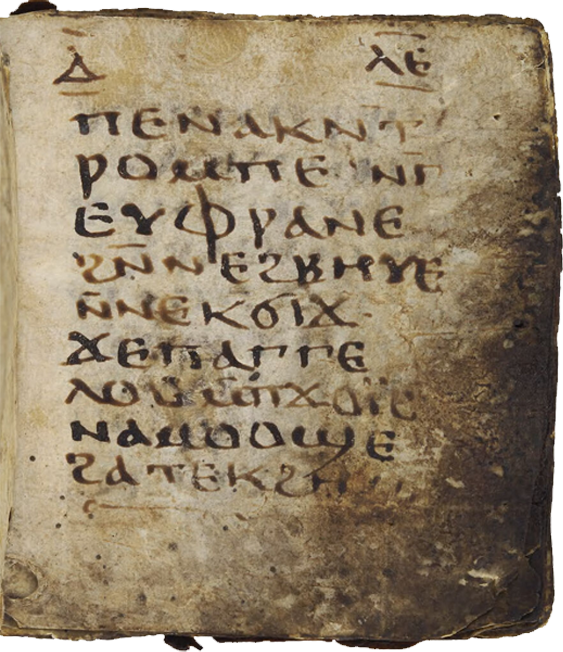 ⲇ̄ ⲗ̄ⲉ̄
ⲡⲉⲛⲁⲕⲛⲧ
ⲣⲟⲙⲡⲉ ⲛⲅ
ⲉⲩⲫⲣⲁⲛⲉ
ϩⲛ̄ⲛⲉϩⲃⲏⲩⲉ
ⲛ̄ⲛⲉⲕϭⲓϫ·
ϫⲉⲡⲁⲅⲅⲉ
ⲗⲟⲥ ⲙ̄ⲡϫⲟⲓ̈ⲥ
ⲛⲁⲙⲟⲟϣⲉ
ϩⲁⲧⲉⲕϩⲏ